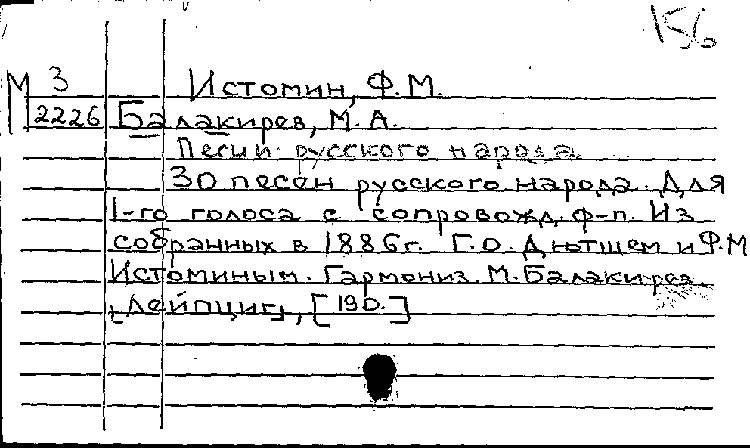 156
М 3 Истомин, Ф.М.
2226 Балакирев, М.А.
Песни русского народа
30 песен русского народа. Для
1-го голоса с сопровожд. ф-п. Из
собранных в 1886г. Г.О. Дютшем и Ф.М
Истоминым. Гармониз. М. Балакирев
[Лейпциг], [190.]